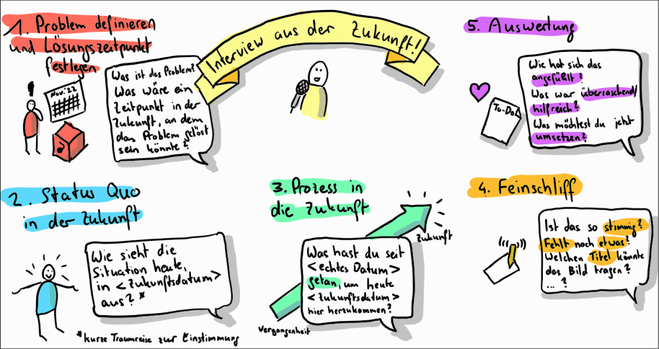 Interview aus der Zukunft!
1. Problem definieren
und Lösungszeitpunkt
festlegen
Nov. 22
Was ist das Problem?
Was wäre ein
Zeitpunkt in der
Zukunft, an dem
das Problem gelöst
sein könnte?
2. Status Quo
in der Zukunft
Wie sieht die
Situation heute,
in <Zukunftsdatum>
aus? *
*kurze Traumreise zur Einstimmung
3. Prozess in
die Zukunft
Zukunft
Was hast du seit
<echtes Datum>
getan, um heute
<Zukunftsdatum>
hier herzukommen?
Vergangenheit
4. Feinschliff
Ist das so stimmig?
Fehlt noch etwas?
Welchen Titel könnte
das Bild tragen?
...?
5. Auswertung
To-Do:
Wie hat sich das
angefühlt?
Was war überraschend/
hilfreich?
Was möchtest du jetzt
umsetzen?